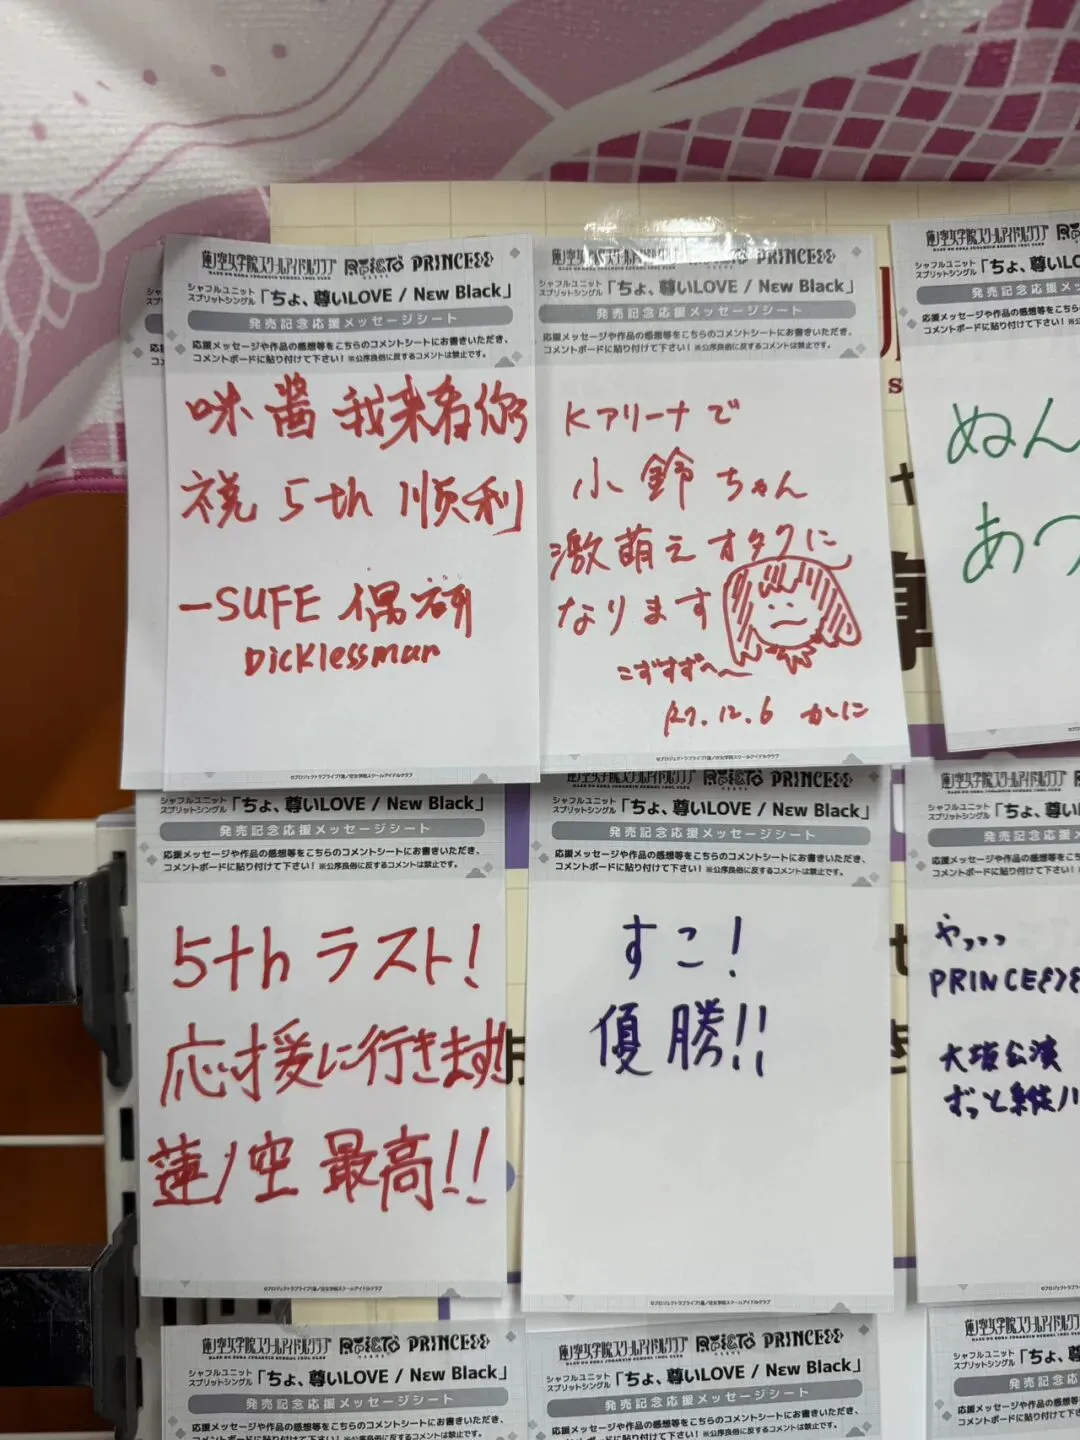 蓮ノ空女学院スクールアイドルクラブ PRINCESS
シャフルユニット
スプリットシングル 「ちょ、尊いLOVE / Nεw Black」
発売記念応援メッセージシート
応援メッセージや作品の感想等をこちらのコメントシートにお書きいただき、
コメントボードに貼り付けて下さい！ ※公序良俗に反するコメントは禁止です。
咪酱 我来看你
祝 5th 顺利
—SUFE 偶研
Dicklessman
©プロジェクトラブライブ！蓮ノ空女学院スクールアイドルクラブ
PRINCESS
シャフルユニット
スプリットシングル 「ちょ、尊いLOVE / Nεw Black」
発売記念応援メッセージシート
応援メッセージや作品の感想等をこちらのコメントシートにお書きいただき、
コメントボードに貼り付けて下さい！ ※公序良俗に反するコメントは禁止です。
Kアリーナで
小鈴ちゃん
激萌えオタクに
なります
こずすず〜〜
R7.12.6 かに
©プロジェクトラブライブ！蓮ノ空女学院スクールアイドルクラブ
シャフルユニット
スプリットシングル 「ちょ、尊いL
応援メッセージや作品の
コメントボードに貼り付け
ぬん
あつ
シャフルユニット
スプリットシングル 「ちょ、尊いLOVE / Nεw Black」
発売記念応援メッセージシート
応援メッセージや作品の感想等をこちらのコメントシートにお書きいただき、
コメントボードに貼り付けて下さい！ ※公序良俗に反するコメントは禁止です。
5th ラスト！
応援に行きます!!
蓮ノ空 最高!!
©プロジェクトラブライブ！蓮ノ空女学院スクールアイドルクラブ
蓮ノ空女学院スクールアイドルクラブ PRINCESS
シャフルユニット
スプリットシングル 「ちょ、尊いLOVE / Nεw Black」
発売記念応援メッセージシート
応援メッセージや作品の感想等をこちらのコメントシートにお書きいただき、
コメントボードに貼り付けて下さい！ ※公序良俗に反するコメントは禁止です。
すこ！
優勝!!
©プロジェクトラブライブ！蓮ノ空女学院スクールアイドルクラブ
シャフルユニット
スプリットシングル 「ちょ、尊いL
発売記念
応援メッセージや作品の感想等を
コメントボードに貼り付けて下さい！
やっっっ
PRINCE
公演
ずっと
蓮ノ空女学院スクールアイドルクラブ PRINCESS
HASU NO SORA JOGAKUIN SCHOOL IDOL CLUB
シャフルユニット
スプリットシングル 「ちょ、尊いLOVE / Nεw Black」
発売記念応援メッセージシート
応援メッセージや作品の感想等をこちらのコメントシートにお書きいただき、
コメントボードに貼り付けて下さい！ ※公序良俗に反するコメントは禁止です。
蓮ノ空女学院スクールアイドルクラブ PRINCESS
HASU NO SORA JOGAKUIN SCHOOL IDOL CLUB
シャフルユニット
スプリットシングル 「ちょ、尊いLOVE / Nεw Black」
発売記念応援メッセージシート
応援メッセージや作品の感想等をこちらのコメントシートにお書きいただき、
コメントボードに貼り付けて下さい！ ※公序良俗に反するコメントは禁止です。
シャフルユニット
スプリットシングル 「ちょ、尊
発売記
応援メッセージや作品の感想
コメントボードに貼り付けて